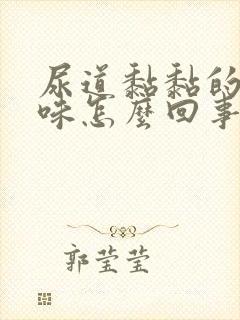 尿道黏黏的
味怎麼回事
郭莹莹